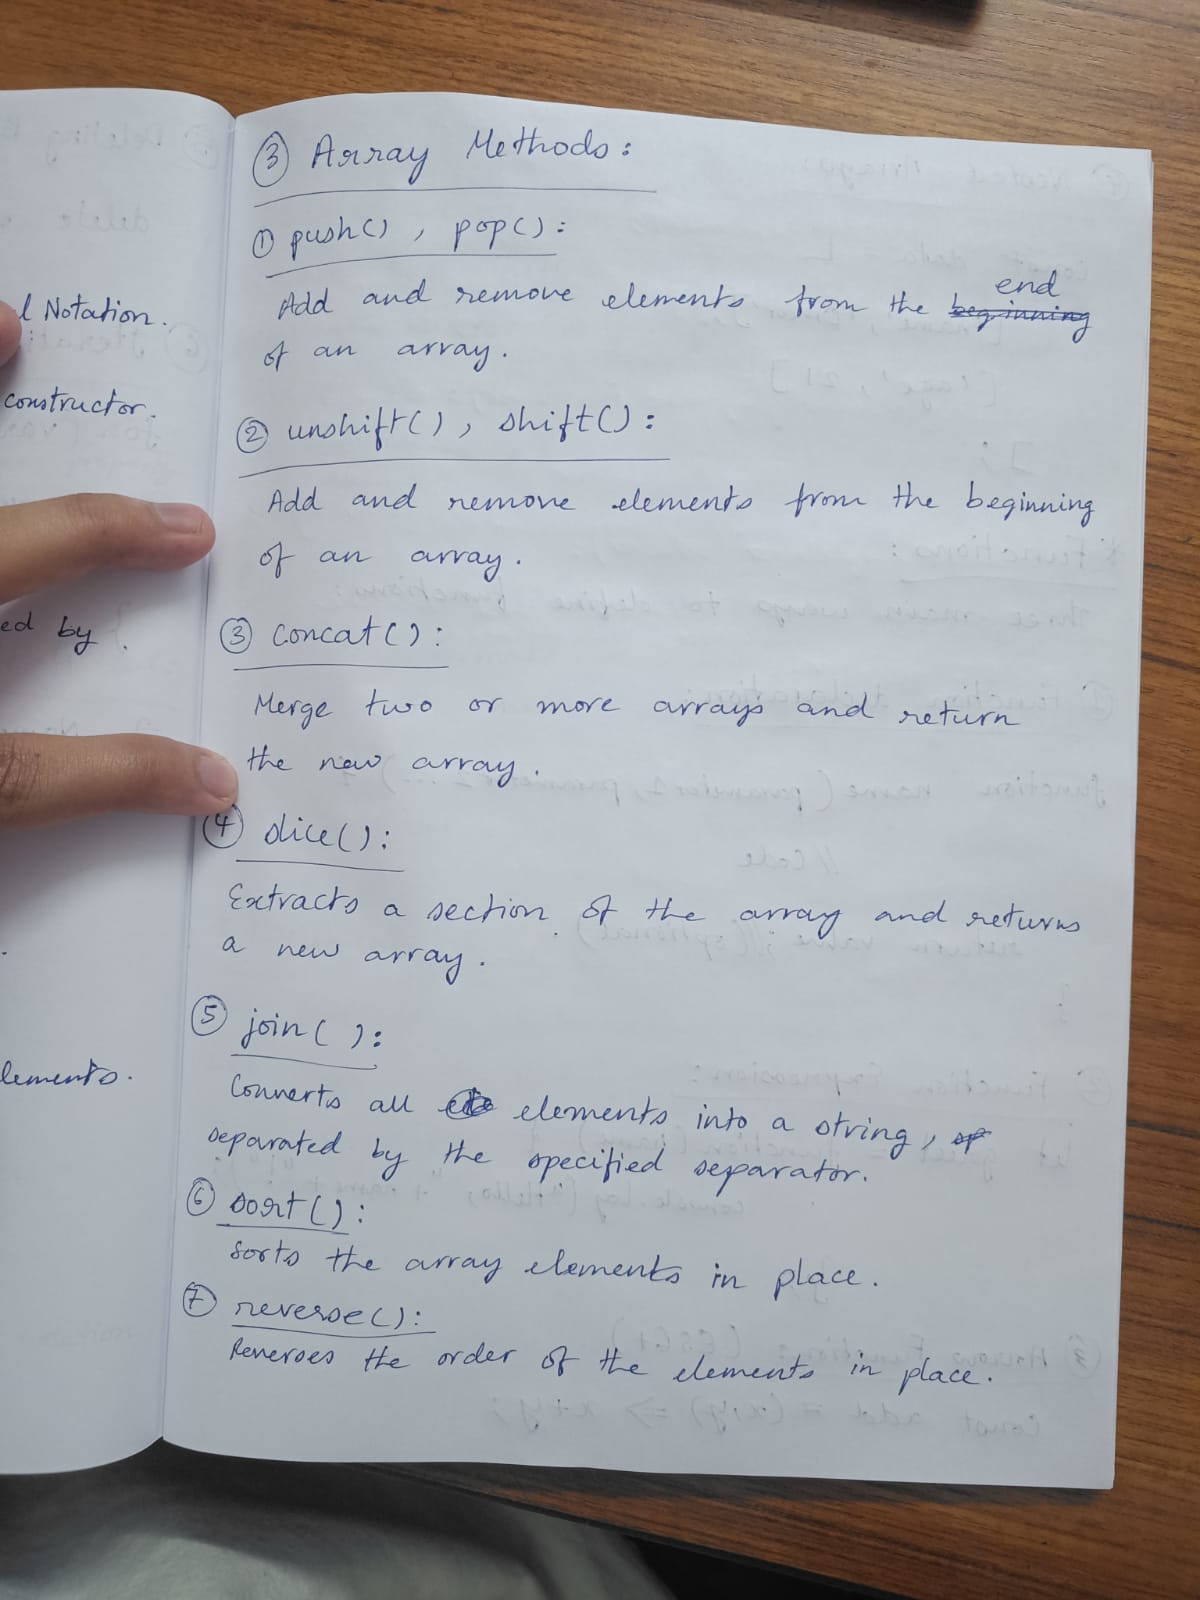 ③ Array Methods:
① push() , pop():
Add and remove elements from the beginning end
of an array.
② unshift(), shift():
Add and remove elements from the beginning
of an array.
③ concat():
Merge two or more arrays and return
the new array.
④ slice():
Extracts a section of the array and returns
a new array.
⑤ join( ):
Converts all elements into a string, sp
separated by the specified separator.
⑥ sort():
Sorts the array elements in place.
⑦ reverse():
Reverses the order of the elements in place.
l Notation.
constructor.
ed by
lements.